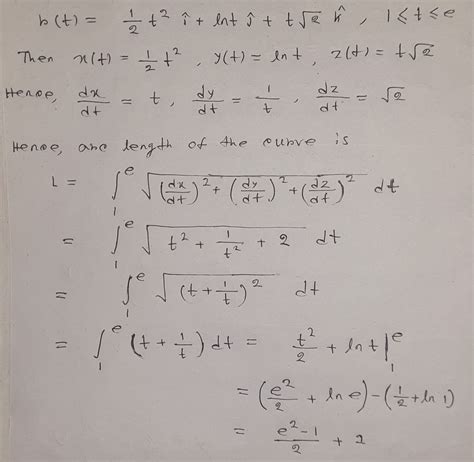 b(t) = 1/2 t² î + ln t ĵ + t√2 k̂ , 1 ≤ t ≤ e
Then x(t) = 1/2 t² , y(t) = ln t , z(t) = t√2
Hence, dx/dt = t , dy/dt = 1/t , dz/dt = √2
Hence, arc length of the curve is
L = ∫₁ᵉ √((dx/dt)² + (dy/dt)² + (dz/dt)²) dt
= ∫₁ᵉ √(t² + 1/t² + 2) dt
= ∫₁ᵉ √((t + 1/t)²) dt
= ∫₁ᵉ (t + 1/t) dt = t²/2 + ln t |₁ᵉ
= (e²/2 + ln e) - (1/2 + ln 1)
= (e² - 1)/2 + 2